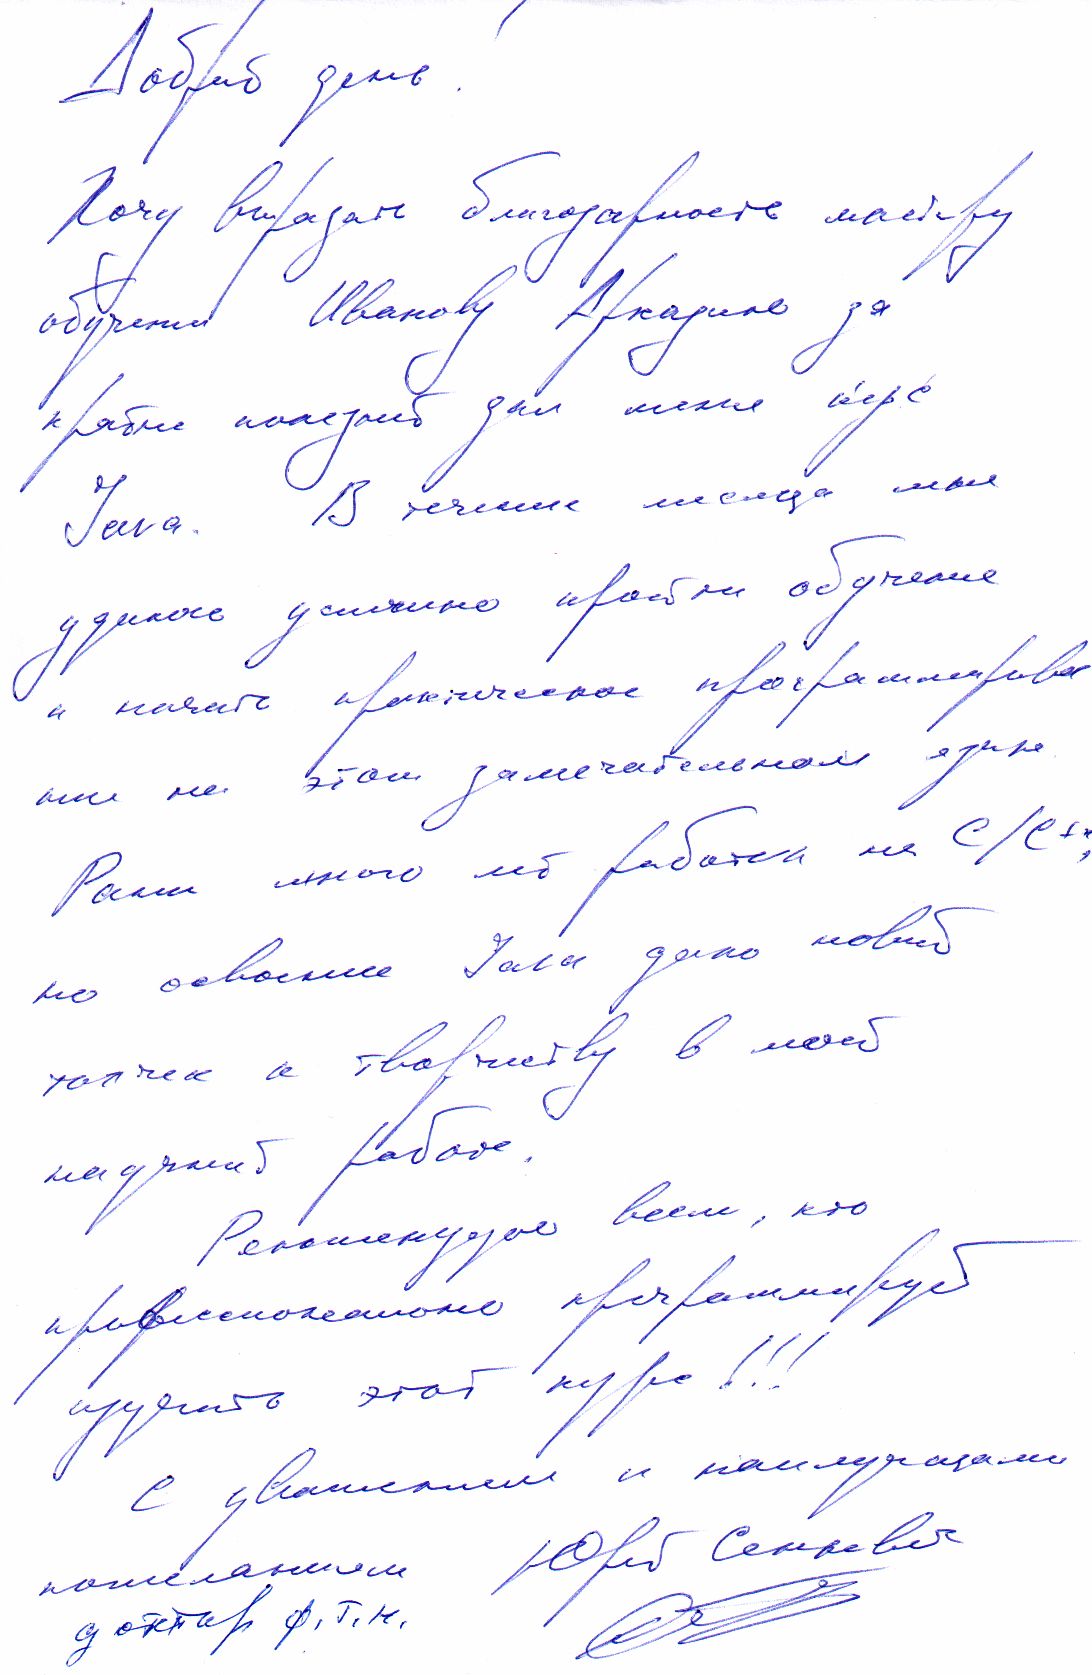 Добрый день!
Хочу выразить благодарность мастеру
обучения Иванову Аркадию за
крайне полезный для меня курс
Java. В течение месяца мне
удалось успешно пройти обучение
и начать практическое программирова
ние на этом замечательном языке.
Ранее много лет работал на С/С++,
но освоение Java дало новый
толчек к творчеству в моей
научной работе.
Рекомендую всем, кто
профессионально программирует
изучить этот курс!!!
С уважением и наилучшими
пожеланиями Юрий Сенкевич
доктор ф.т.н.